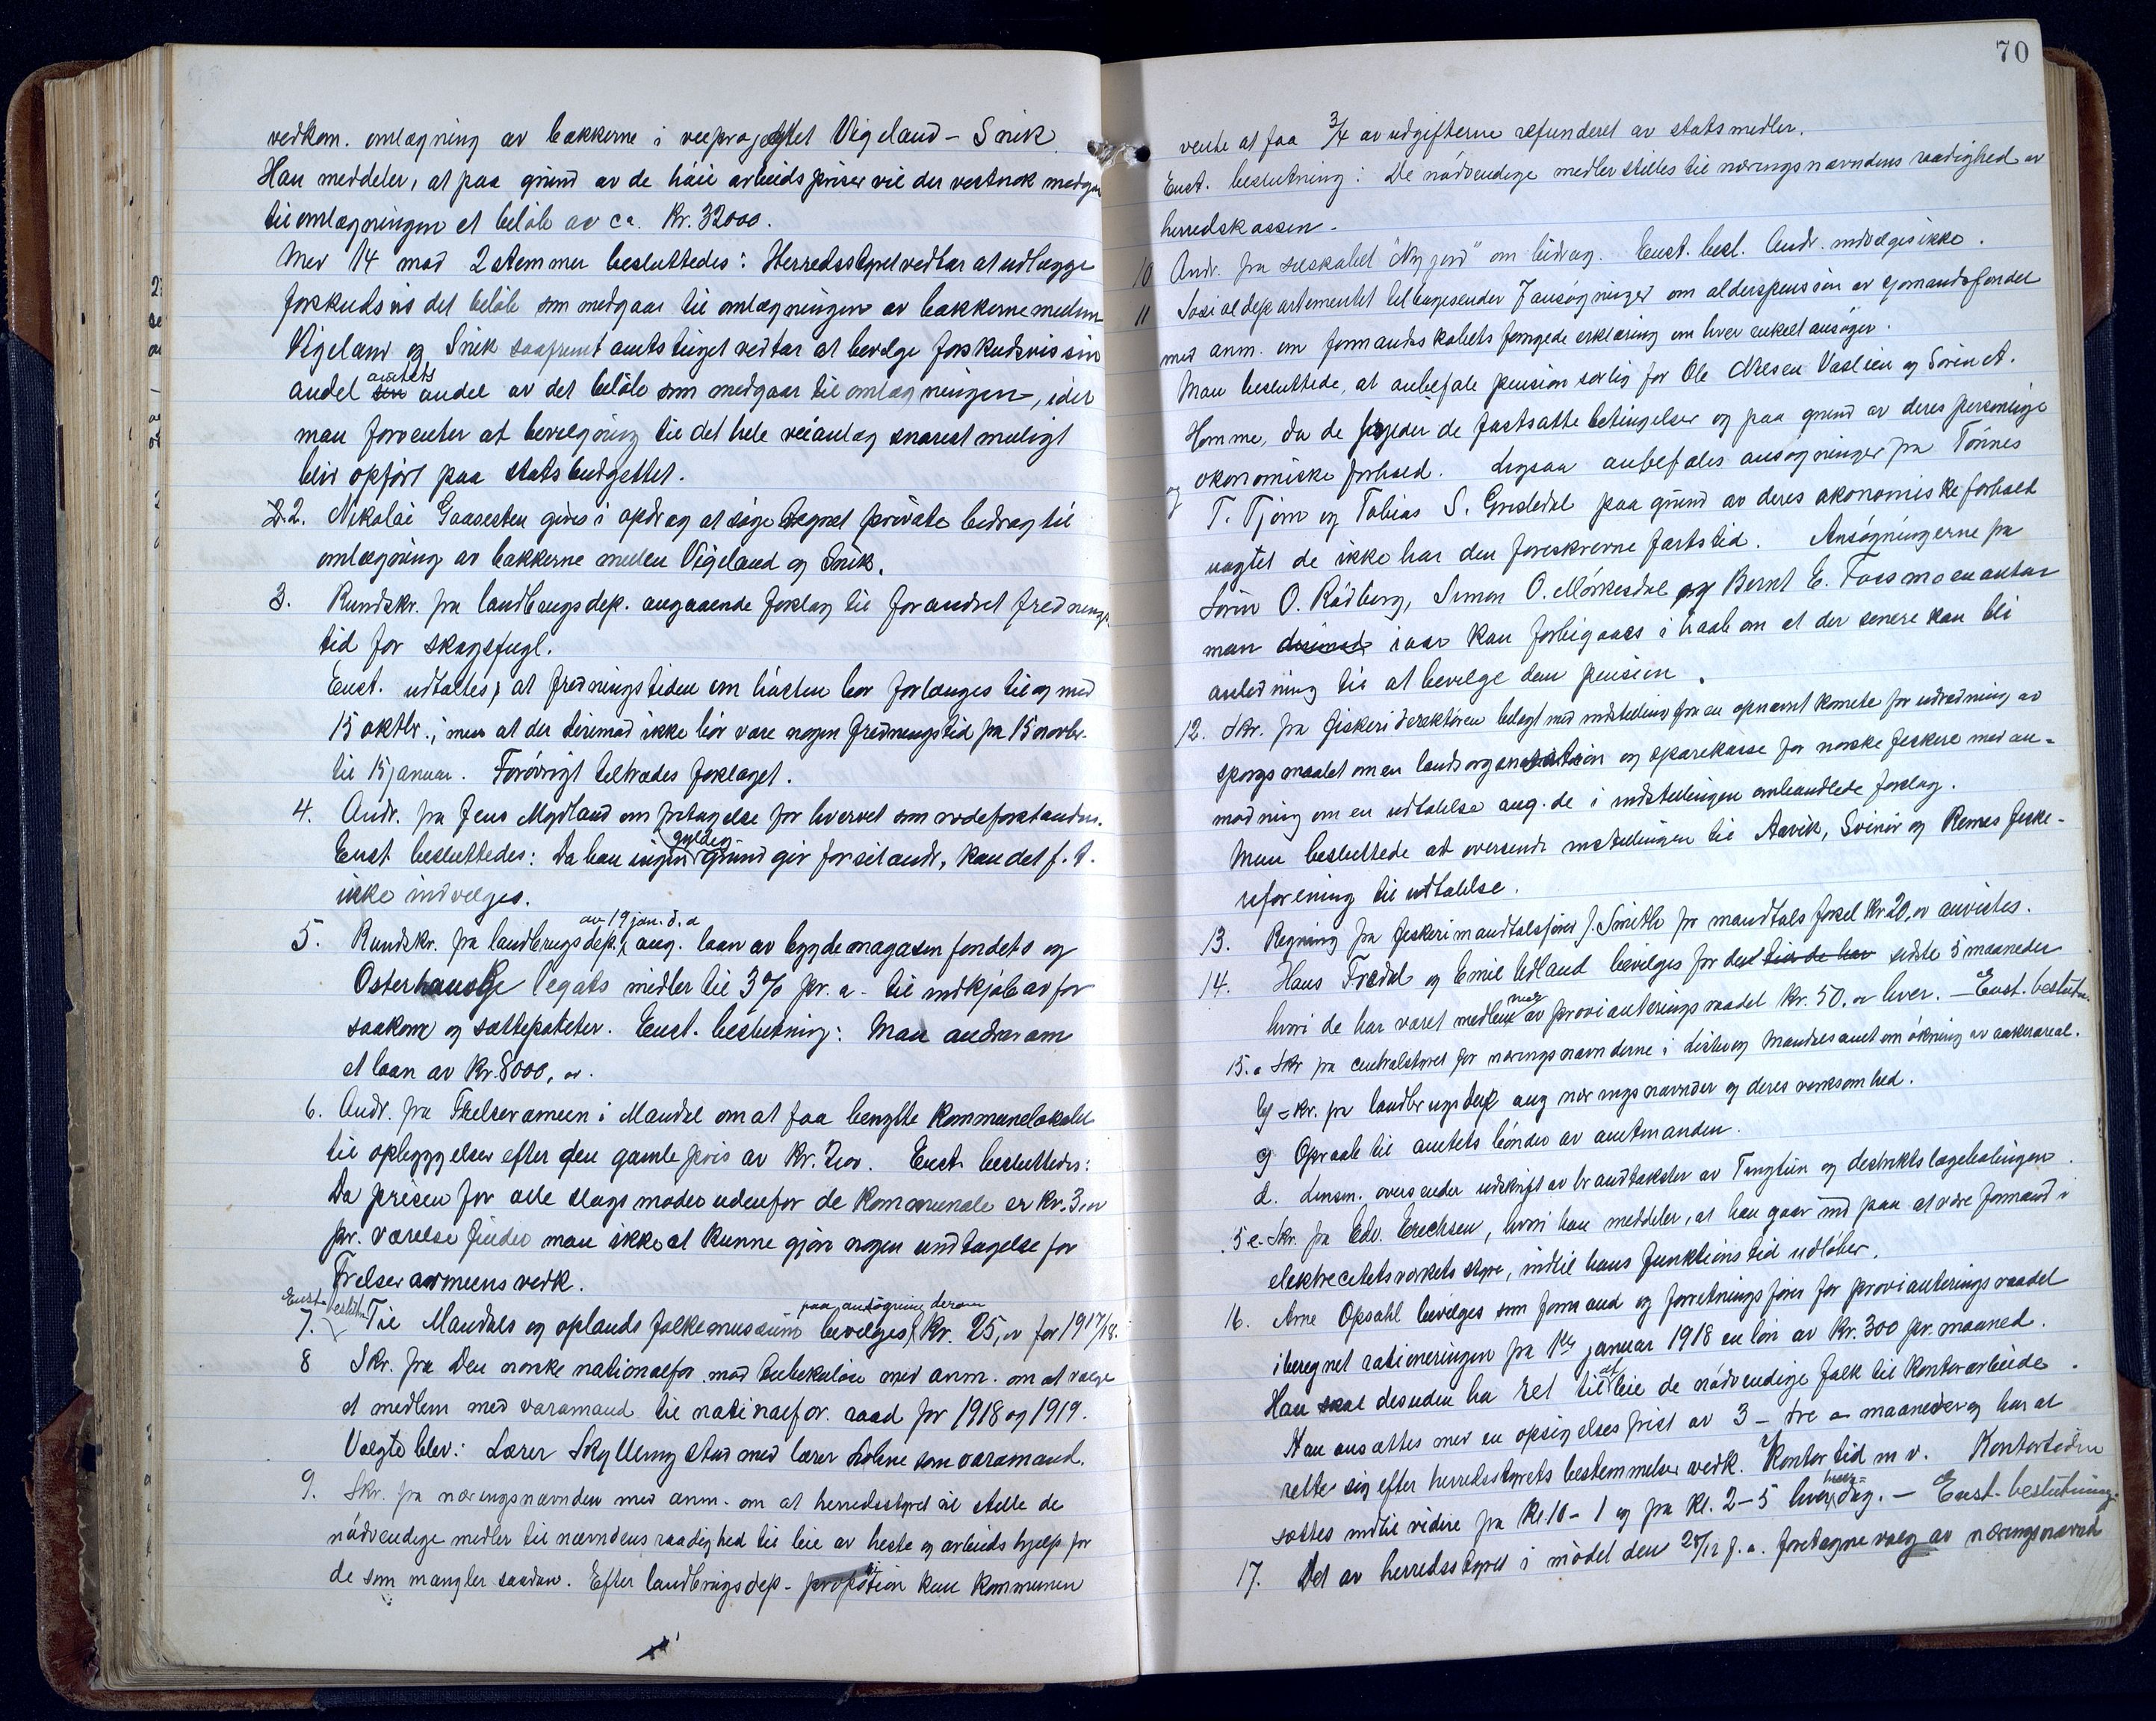 vedkom. omlægning av bakkerne i veiprojektet Vigeland - Snik.
Han meddeler, at paa grund av de høie arbeidspriser vil der vestnok medgaa
til omlægningen et beløb av ca. Kr. 32000.
Med 14 mod 2 stemmer besluttedes: Herredsstyret vedtar at udlægge
forskudsvis det beløb som medgaar til omlægningen av bakkerne mellem
Vigeland og Snik saafremt amtstinget vedtar at bevilge forskudsvis sin
andel amtets andel av det beløb som medgaar til omlægningen, idet
man forventer at bevilgning til det hele veianlæg snarest muligt
blir opført paa statsbudgettet.
2. Nikolai Gaasesten gives i opdrag at søge tegnet private bidrag til
omlægning av bakkerne mellem Vigeland og Snik.
3. Rundskr. fra landbrugsdep. angaaende forslag til forandret frednings-
tid for skogsfugl.
Enst. udtaltes, at fredningstiden om høsten bør forlænges til og med
15 oktbr., men at der derimod ikke bør være nogen fredningstid fra 15 novbr.
til 15 januar. Forøvrigt tiltrædes forslaget.
4. Andr. fra Jens Mydland om fritagelse for hvervet som rodeforstander.
Enst besluttedes: Da han ingen gyldig grund gir for sit andr, kan det f. t.
ikke indvilges.
5. Rundskr. fra landbrugsdep. av 19 jan. d. a ang. laan av bygdemagasinfondets og
Osterhausge legats midler til 3% pr. a. til indkjøb av for
saakorn og sættepoteter. Enst. beslutning: Man andrar om
et laan av Kr. 8000, oo.
6. Andr. fra Frelserarmeen i Mandal om at faa benytte Kommunelokalet
til opbyggelser efter den gamle pris av Kr. 2,00. Enst. besluttedes:
Da prisen for alle slags møder udenfor de Kommunale er Kr. 3,oo
pr. værelse finder man ikke at kunne gjøre nogen undtagelse for
Frelserarmeens vedk.
Enst beslutn.
7. Til Mandals og oplands folkemusæum bevilges paa ansøgning derom Kr. 25, oo for 1917/18.
8 Skr. fra Den norske nationalfor. mod tuberkulose med anm. om at vælge
et medlem med varamand til nationalfor. raad for 1918 og 1919.
Valgte blev: Lærer Skyllingstad med lærer Lohne som varamand.
9. Skr. fra næringsnævnden med anm. om at herredsstyret vil stille de
nødvendige midler til nævndens raadighed til leie av heste og arbeidshjelp for
de som mangler saadan. Efter landbrugsdep. proposition kan Kommunen
70
vente at faa 3/4 av udgifterne refunderet av statsmidler.
Enst. beslutning: De nødvendige midler stilles til næringsnævndens raadighed av
herredskassen.
10 Andr. fra selskabet "Ny jord" om bidrag. Enst. besl. Andr. indvilges ikke.
11 Socialdepartementet tilbagesender 7 ansøgninger om alderspension av sjømandsfondet
med anm. om formandskabets fornyede erklæring om hver enkelt ansøger.
Man besluttede, at anbefale pension særlig for Ole Nilsen Vaslien og Sørine A.
Homme, da de fyjeder de fastsatte betingelser og paa grund av deres personlige
og økonomiske forhold. Ligesaa anbefales ansøgninger fra Tønnes
T. Tjørn og Tobias S. Gredal paa grund av deres økonomiske forhold
uagtet de ikke har den foreskrevne fartstid. Ansøgningerne fra
Sørin O. Rødberg, Simon O. Mørkesdal og Bernt E. Fossmoen antar
man iaar kan forbigaaes i haab om at der senere kan bli
anledning til at bevilge dem pension.
12. Skr. fra fiskeridirektøren belagt med indstilling fra en opnævnt komite for udredning av
spørgsmaalet om en landsorganisation og sparekasse for norske fiskere med an-
modning om en udtalelse ang. de i indstillingen omhandlede forslag.
Man besluttede at oversende indstillingen til Aavik, Svinør og Remes fiske-
riforening til udtalelse.
13. Regning fra fiskerimandtalsfører J. Smith for mandtals forsel Kr. 20. oo anvistes.
14. Hans Fredal og Emil Udland bevilges for den tid de har sidste 5 maaneder
hvori de har været medlem av provianteringsraadet Kr. 50. oo hver. - Enst. beslutn.
15. a Skr fra centralstyret for næringsnævnderne i Lister og Mandals amt om økning av aakerareal.
b) Skr. fra landbrugsdep ang næringsnævnder og deres verksomhed.
c) Opraab til amtets bønder av amtmanden.
d. Lensm. oversender udskrift av brandtakster av Tingtun og distriktslægeboligen.
15 e. Skr. fra Edv. Erichsen, hvori han meddeler, at han gaar ind paa at være formand i
elektricitetsverkets styre, indtil hans funktionstid udløber.
16. Arne Opsahl bevilges som formand og forretningsfører for provianteringsraadet
iberegnet rationeringen fra 1ste januar 1918 en løn av Kr. 300 pr. maaned.
Han skal desuden ha ret til at leie de nødvendige folk til kontorarbeide.
Han ansættes med en opsigelsesfrist av 3 - tre - maaneder og har at
rette sig efter herredsstyrets bestemmelser vedk. kontortid m v. Kontortiden
sættes indtil videre fra Kl. 10 - 1 og fra Kl. 2 - 5 hver dag. - Enst. beslutning.
17. Det av herredsstyret i mødet den 28/12 f. a. foretagne valg av næringsnævnd